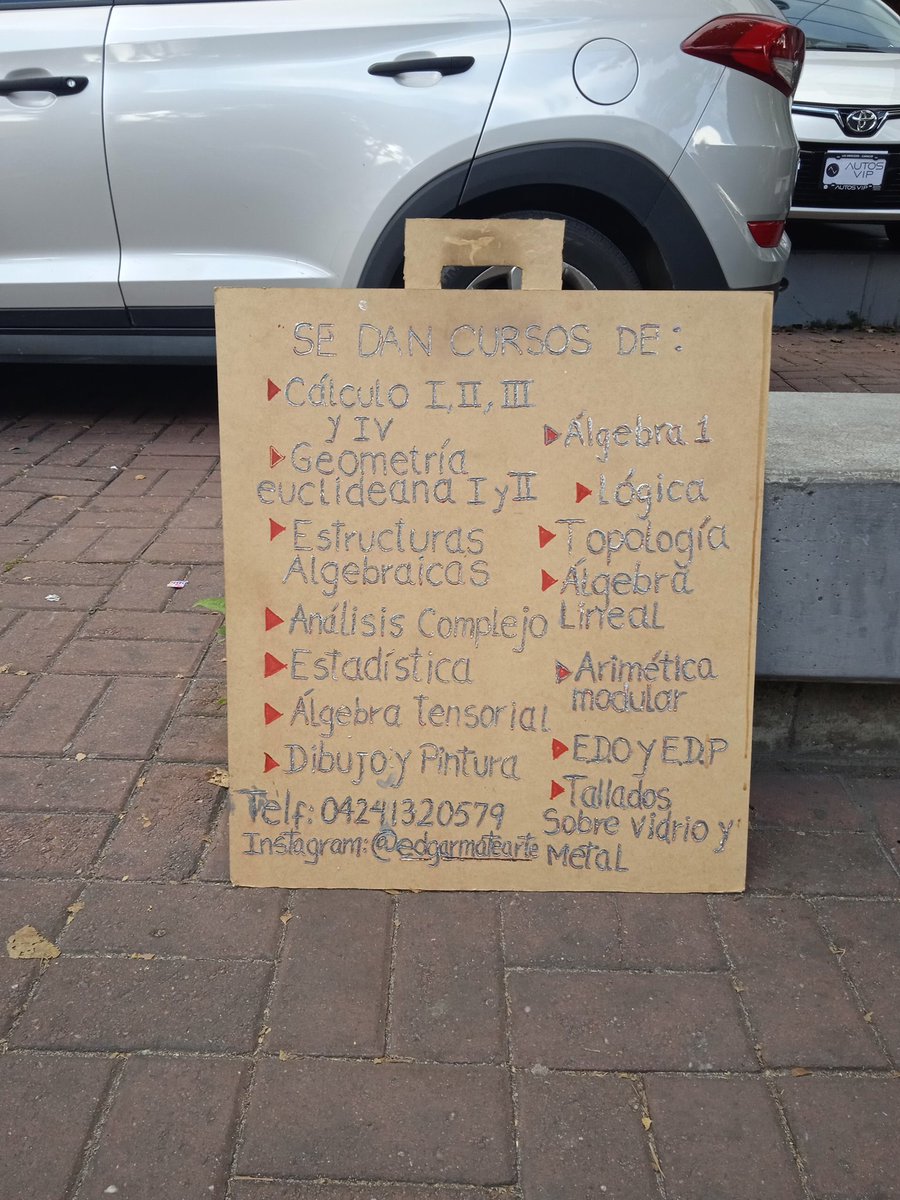 SE DAN CURSOS DE:
Cálculo I, II, III
y IV
Geometría
euclideana I y II
Estructuras
Algebraicas
Análisis Complejo
Estadística
Álgebra tensorial
Dibujo y Pintura
Telf: 04241320579
Instagram: @edgarmatearte
Álgebra 1
Lógica
Topología
Álgebra
Lineal
Arimética
modular
E.D.O y E.D.P
Tallados
Sobre vidrio y
Metal
AUTOS
VIP
AUTOS VIP